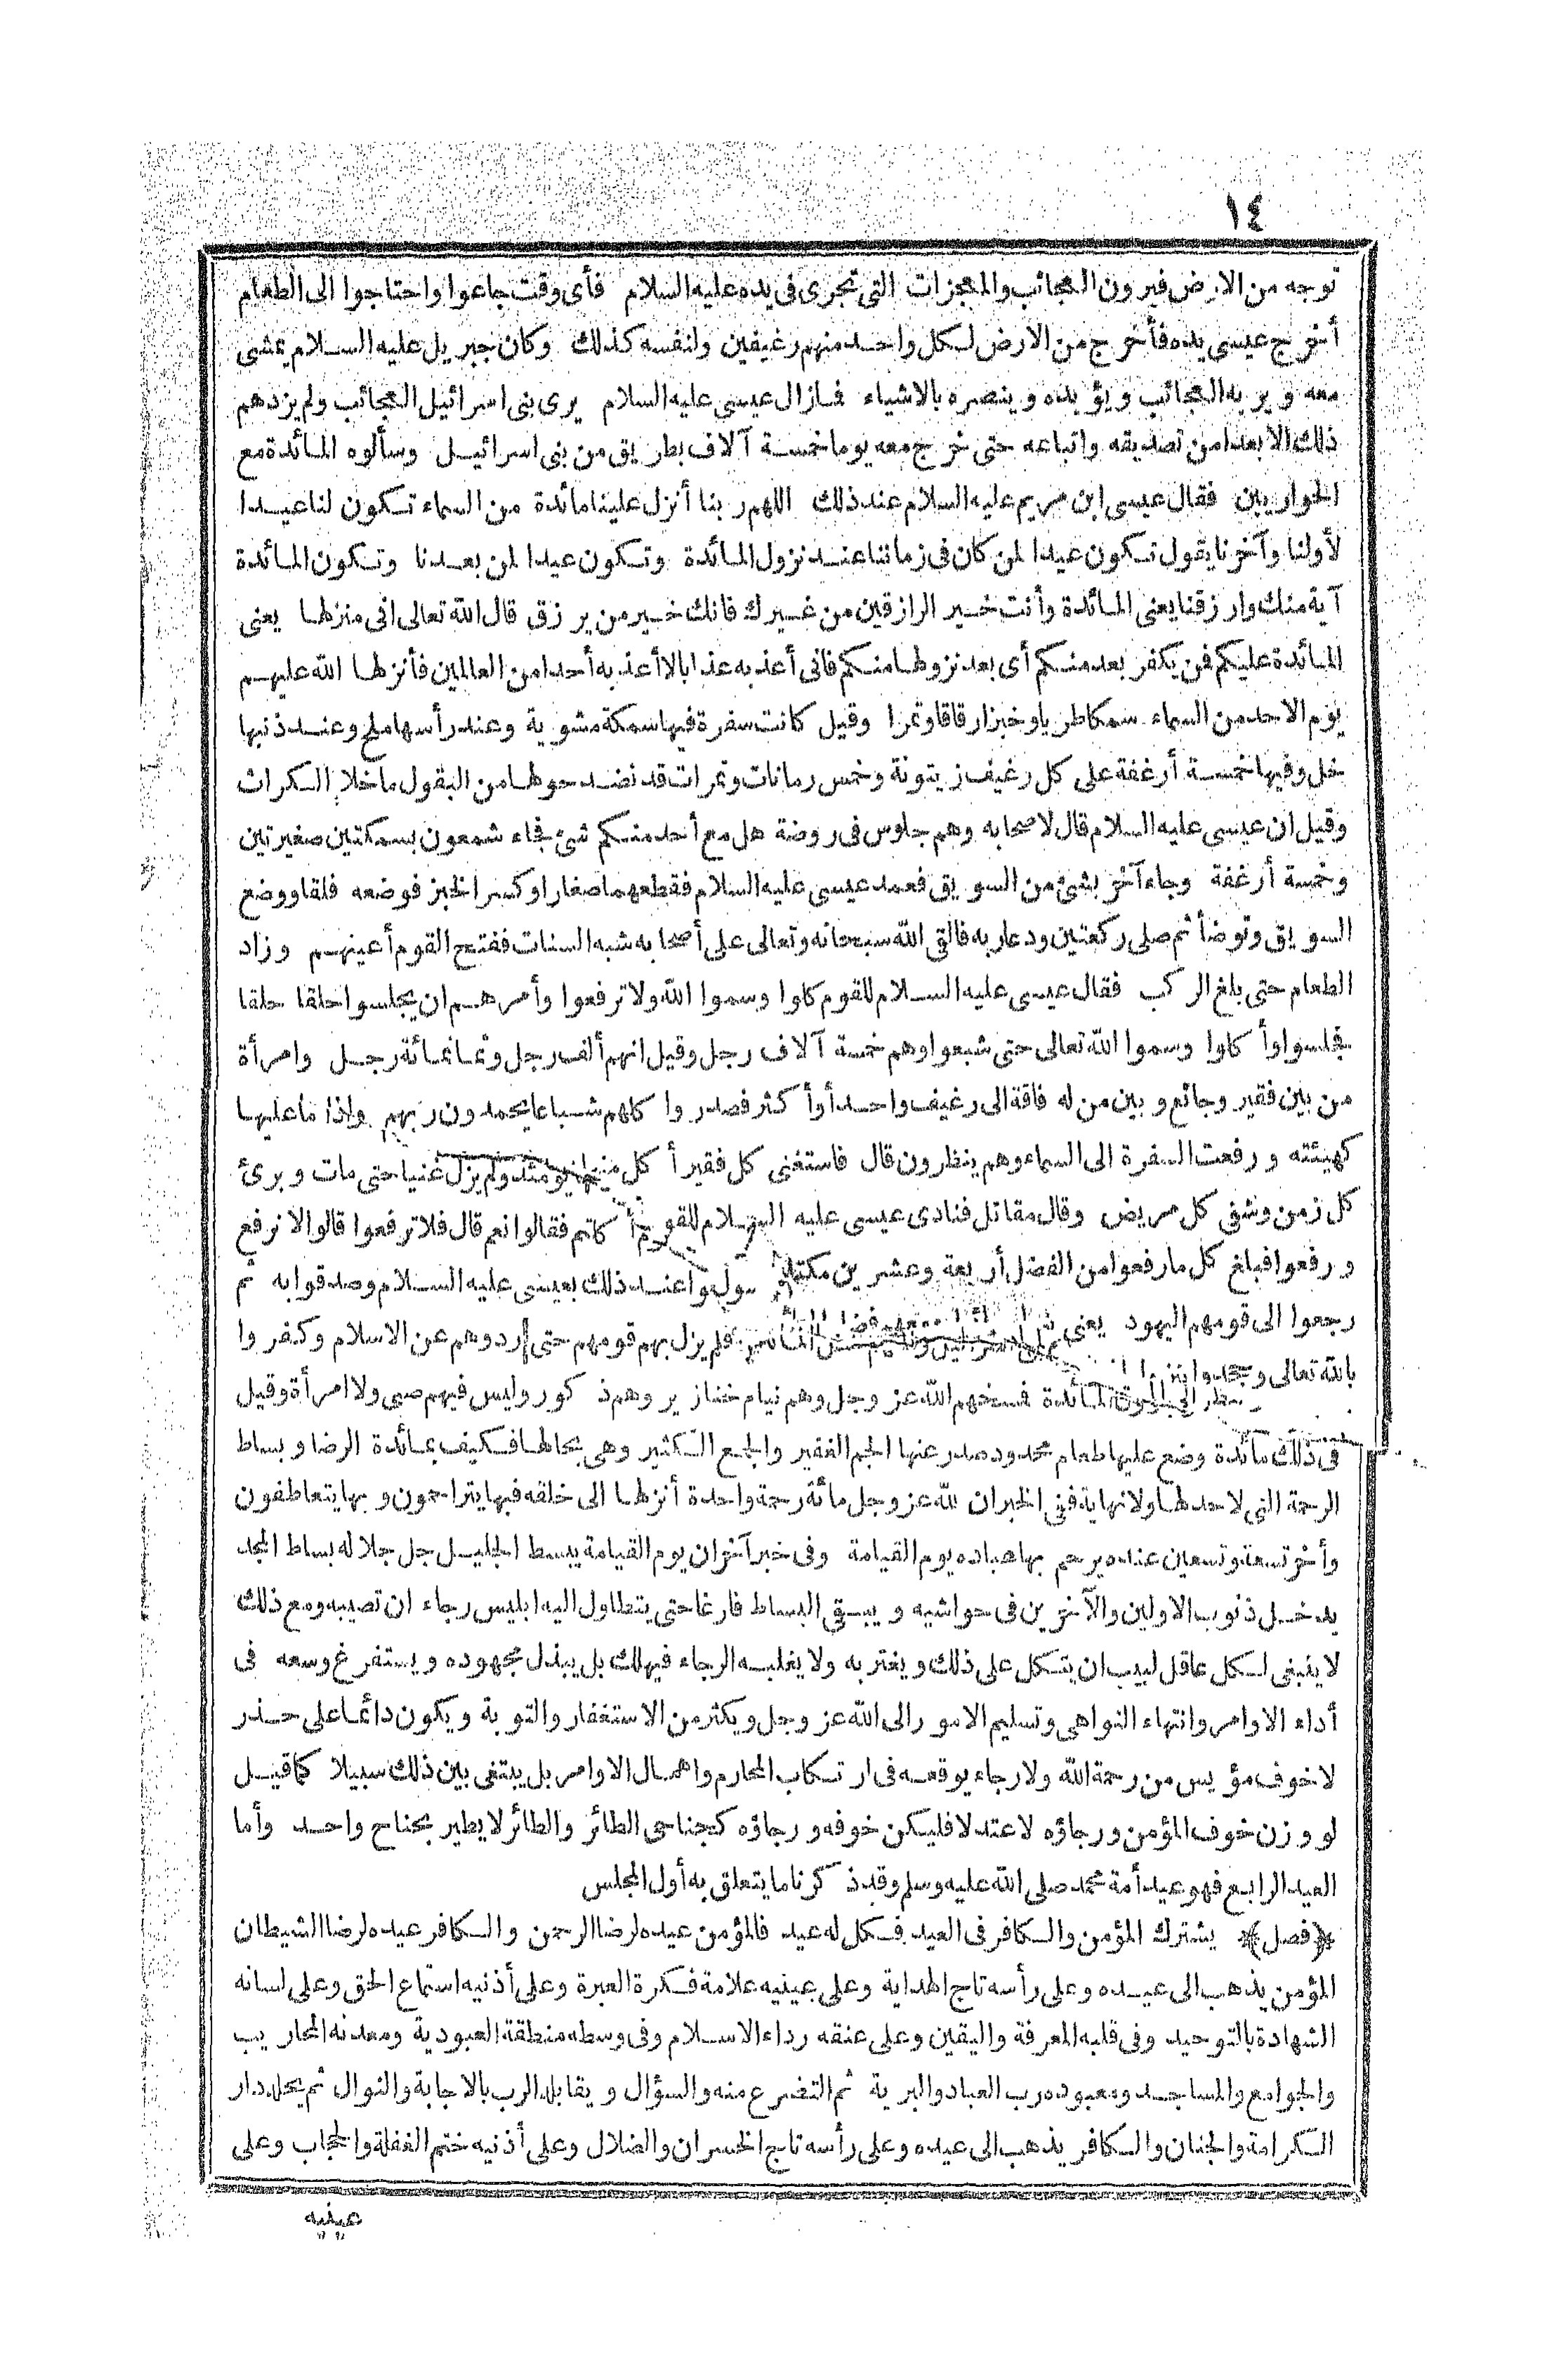 ١٤
توجه من الارض فيرون العجائب والمعجزات التى تجرى فى يده عليه السلام فأى وقت جاعوا واحتاجوا الى الطعام
أخرج عيسى يده فأخرج من الارض لكل واحد منهم رغيفين ولنفسه كذلك وكان جبريل عليه السلام يمشى
معه ويريه العجائب ويؤيده وينصره بالاشياء فمازال عيسى عليه السلام يرى بنى اسرائيل العجائب ولم يزدهم
ذلك الا بعدا من تصديقه واتباعه حتى خرج معه يوما خمسة آلاف بطريق من بنى اسرائيل وسألوه المائدة مع
الحواريين فقال عيسى ابن مريم عليه السلام عند ذلك اللهم ربنا أنزل علينا مائدة من السماء تكون لنا عيدا
لأولنا وآخرنا يقول تكون عيدا لمن كان فى زماننا عند نزول المائدة وتكون عيدا لمن بعدنا وتكون المائدة
آية منك وارزقنا يعنى المائدة وأنت خير الرازقين من غيرك فانك خير من يرزق قال الله تعالى انى منزلها يعنى
المائدة عليكم فمن يكفر بعد منكم أى بعد نزولها منكم فانى أعذبه عذابا لا أعذبه أحدا من العالمين فأنزلها الله عليهم
يوم الاحد من السماء سمكا طريا وخبزا رقاقا وتمرا وقيل كانت سفرة فيها سمكة مشوية وعند رأسها ملح وعند ذنبها
خل وفيها خمسة أرغفة على كل رغيف زيتونة وخمس رمانات وتمرات قد نضد حولها من البقول ما خلا الكراث
وقيل ان عيسى عليه السلام قال لاصحابه وهم جلوس فى روضة هل مع أحد منكم شئ فجاء شمعون بسمكتين صغيرتين
وخمسة أرغفة وجاء آخر بشئ من السويق فعمد عيسى عليه السلام فقطعهما صغارا وكسر الخبز فوضعه فلقا ووضع
السويق وتوضأ ثم صلى ركعتين ودعا ربه فالقى الله سبحانه وتعالى على أصحابه شبه السنات ففتح القوم أعينهم وزاد
الطعام حتى بلغ الركب فقال عيسى عليه السلام للقوم كلوا وسموا الله ولا ترفعوا وأمرهم ان يجلسوا حلقا حلقا
فجلسوا وأكلوا وسموا الله تعالى حتى شبعوا وهم خمسة آلاف رجل وقيل انهم ألف رجل وثمانمائة رجل وامرأة
من بين فقير وجائع وبين من له فاقة الى رغيف واحد أو أكثر فصدروا كلهم شباعا يحمدون ربهم واذا ما عليها
كهيئته ورفعت السفرة الى السماء وهم ينظرون قال فاستغنى كل فقير أكل منها يومئذ ولم يزل غنيا حتى مات وبرئ
كل زمن وشفى كل مريض وقال مقاتل فنادى عيسى عليه السلام للقوم أكلتم فقالوا نعم قال فلا ترفعوا قالوا لا نرفع
ورفعوا فبلغ كل ما رفعوا من الفضل أربعة وعشرين مكتلا عند ذلك بعيسى عليه السلام وصدقوا به ثم
رجعوا الى قومهم اليهود يعنى فلم يزل بهم قومهم حتى ردوهم عن الاسلام وكفروا
بالله تعالى وجحدوا المائدة فمسخهم الله عز وجل وهم نيام خنازير وهم ذكور وليس فيهم صبى ولا امرأة وقيل
فى ذلك مائدة وضع عليها طعام محدود صدر عنها الجم الغفير والجمع الكثير وهى بحالها فكيف بمائدة الرضا وبساط
الرحمة التى لا حد لها ولا نهاية ففى الخبر ان لله عز وجل مائة رحمة واحدة أنزلها الى خلقه فبها يتراحمون وبها يتعاطفون
وأخر تسعة وتسعين عنده يرحم بها عباده يوم القيامة وفى خبر آخر ان يوم القيامة يبسط الجليل جل جلاله بساط المجد
يدخل ذنوب الاولين والآخرين فى حواشيه ويبقى البساط فارغا حتى يتطاول اليه ابليس رجاء ان تصيبه ومع ذلك
لا ينبغى لكل عاقل لبيب ان يتكل على ذلك ويغتر به ولا يغلبه الرجاء فيهلك بل يبذل مجهوده ويستفرغ وسعه فى
أداء الاوامر وانتهاء النواهى وتسليم الامور الى الله عز وجل ويكثر من الاستغفار والتوبة ويكون دائما على حذر
لا خوف مؤيس من رحمة الله ولا رجاء يوقعه فى ارتكاب المحارم واهمال الاوامر بل يبتغى بين ذلك سبيلا كما قيل
لو وزن خوف المؤمن ورجاؤه لاعتدلا فليكن خوفه ورجاؤه كجناحى الطائر والطائر لا يطير بجناح واحد وأما
العيد الرابع فهو عيد أمة محمد صلى الله عليه وسلم وقد ذكرنا ما يتعلق به أول المجلس
﴿فصل﴾ يشترك المؤمن والكافر فى العيد فكل له عيد فالمؤمن عيده لرضا الرحمن والكافر عيده لرضا الشيطان
المؤمن يذهب الى عيده وعلى رأسه تاج الهداية وعلى عينيه علامة فكرة العبرة وعلى أذنيه استماع الحق وعلى لسانه
الشهادة بالتوحيد وفى قلبه المعرفة واليقين وعلى عنقه رداء الاسلام وفى وسطه منطقة العبودية ومعدنه المحاريب
والجوامع والمساجد ومعبوده رب العباد والبرية ثم التضرع منه والسؤال ويقابله الرب بالاجابة والنوال ثم يحله دار
الكرامة والجنان والكافر يذهب الى عيده وعلى رأسه تاج الخسران والضلال وعلى أذنيه ختم الغفلة والحجاب وعلى
عينيه